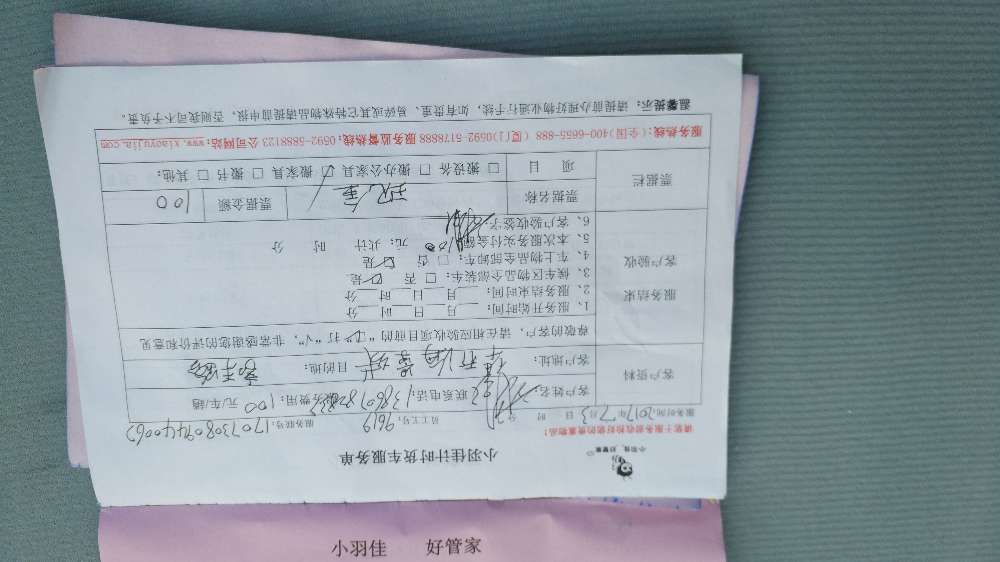 小羽佳计时货车服务单
小羽佳, 好管家
请签下服务前收拾好您的贵重物品！
服务时间:2017年7月3日 时 分 员工工号: 9619 服务联号:
客户资料 客户姓名: 联系电话: 服务费用: 100 元/车/趟
客户地址: 目的地:
尊敬的客户，请在相应验收项目前的“□”打“√”，非常感谢您的评价和意见
服务结束
客户验收
1、服务开始时间: 月 日 时 分
2、服务结束时间: 月 日 时 分
3、候车区物品全部装车: □是 □否
4、车上物品全部卸车: □是 □否
5、本次服务实付金额 100 元; 共计 时 分
6、客户验收签字:
票据栏 票据名称 现金 票据金额 100
项 目 □ 搬设备 □ 搬办公家具 □ 搬家具 □ 搬书 □ 其他:
服务热线:(全国)400-66555-888 (厦门)0592-5178888 服务监督热线:0592-5888123 公司网站:www.xiaoyujia.com
温馨提示: 请提前办理好物业通行手续, 如有贵重、易碎或其它特殊物品请提前申报, 否则我司不予负责。
小羽佳 好管家